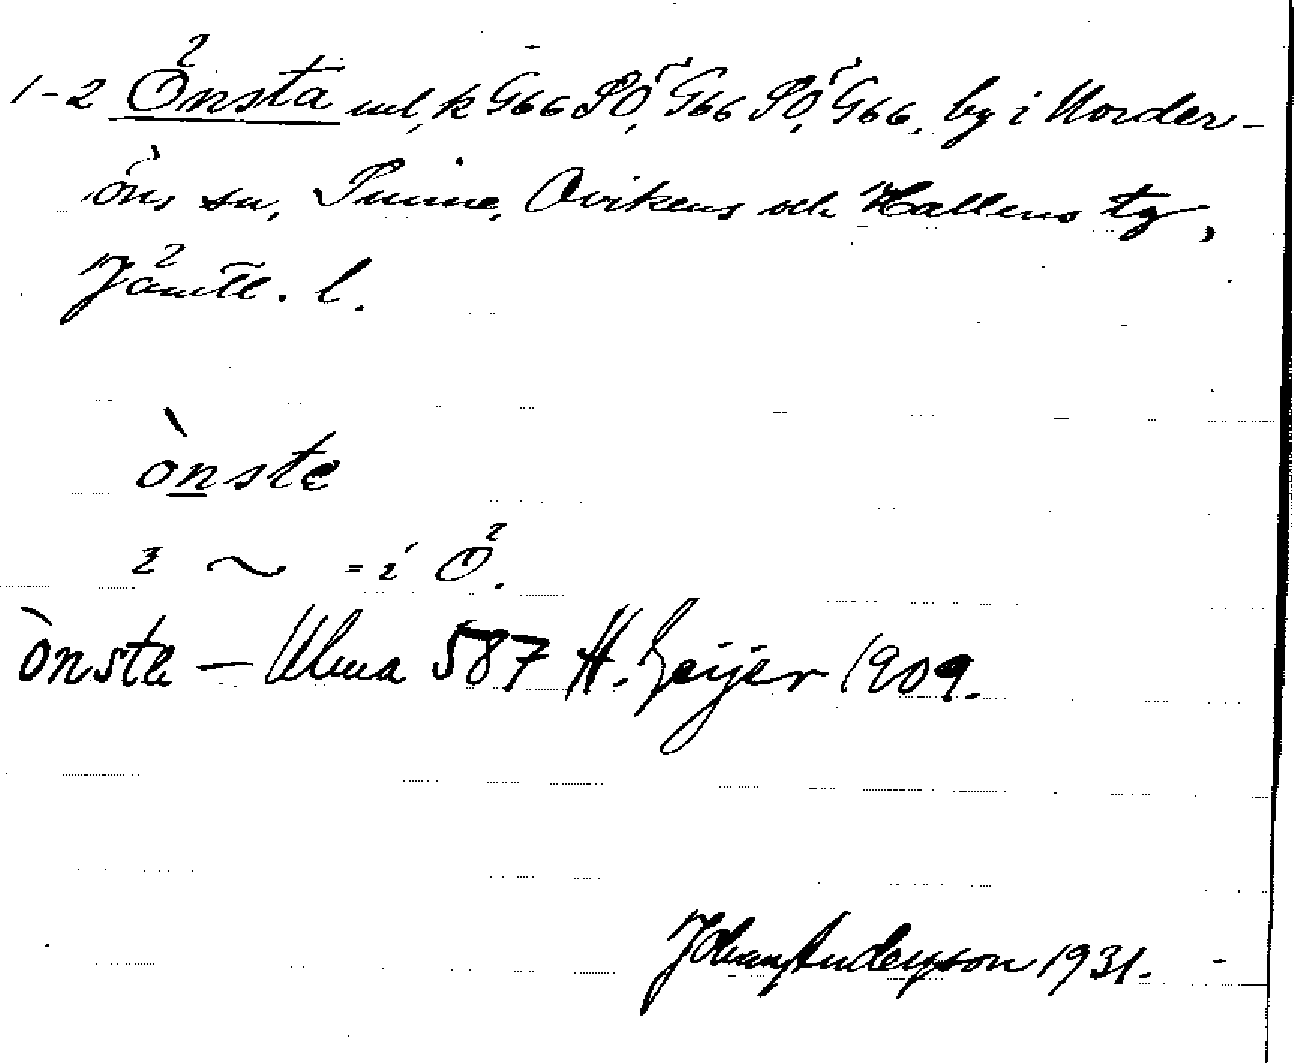 1-2 Önsta uel, k G66 SÖ, G66 SÖ, G66, by i Norder-
öns sn, Sunne, Ovikens och Hallens tg,
Jämtl. l.
önste
2 ~ = i Ö.
önsta — Ulma 587 H. Geijer 1909.
Johan Anderson 1931.